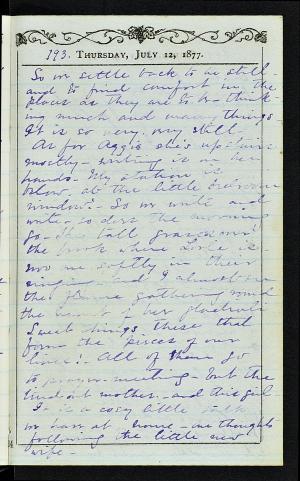 193. THURSDAY, JULY 12, 1877.
So we settle back to be still -
and to find comfort in the
places as they are to be - think
ing much and many things
It is so very, very still.
As for Aggie she's upstairs
mostly - writing is on her
hands - My station is
below, at the little bedroom
window - So we write and
write - so does the morning
go - the tall grasses
the
me softly in their
singing and I almost
the gathering round
the heart of her
Sweet things these that
form the pieces of our
lives! - All of them go
to prayer-meeting - but the
tired out mother - and this girl
It is a cosy little talk
we have at home - our thoughts
following the little new
wife -